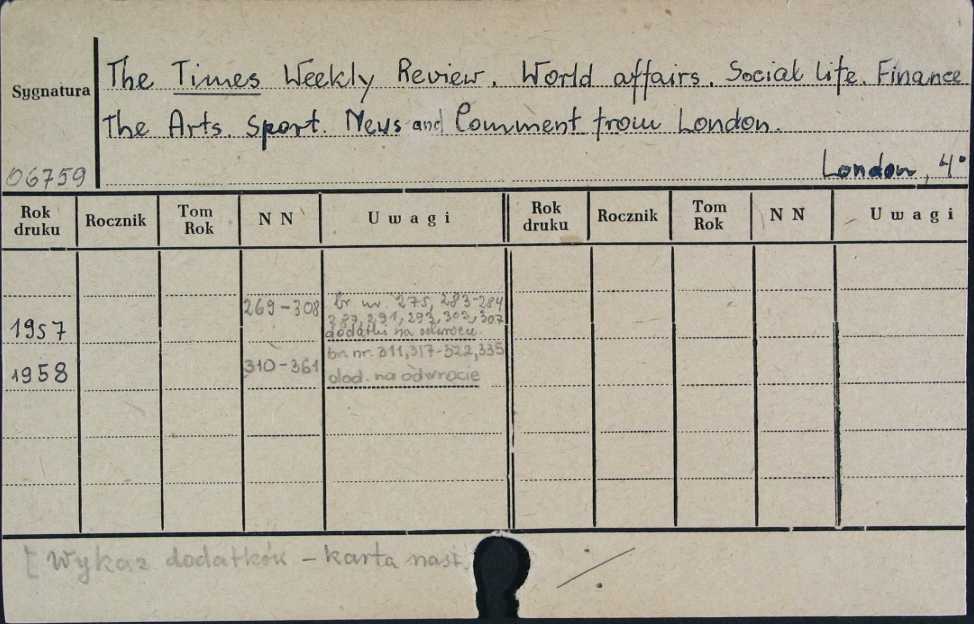 Sygnatura
The Times Weekly Review. World affairs. Social life. Finance
The Arts. Sport. News and Comment from London.
06759 London, 4°
Rok druku Rocznik Tom Rok N N Uwagi Rok druku Rocznik Tom Rok N N Uwagi
1957 269-308 br nr. 275, 283-284
287, 291, 293, 302, 307
dodatki na odwrocie.
1958 310-361 br. nr. 311, 317-322, 335
dod. na odwrocie
[ Wykaz dodatków - karta nast. ./.